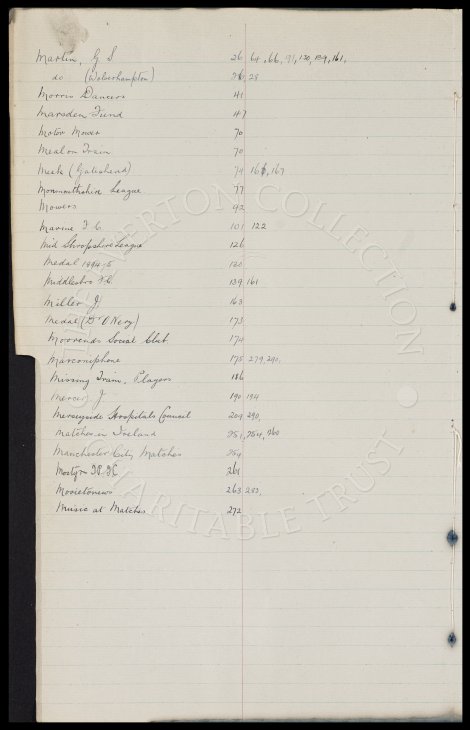 Martin, G S 26 64, 66, 91, 130, 139, 161,
do (Wolverhampton) 26, 28
Morris Dancers 41
Marsden Fund 47
Motor Mower 70
Meal on Train 70
Meek (Gateshead) 74 166, 167
Monmouthshire League 77
Mowers 92
Marine F C 101 122
Mid Shropshire League 126
Medal 1994-5 120
Middlesbro F.C. 139 161
Miller J 163
Medal 173
Moorends Social Club 174
Marconiphone 175 279, 290,
Missing Train, Players 186
Mercer J 190 194
Merseyside Hospitals Council 209 290,
Matches in Ireland 251, 254, 260
Manchester City Matches 254
Mostyn 261
Movietonews 263 282,
Music at Matches 272
EVERTON COLLECTION
CHARITABLE TRUST